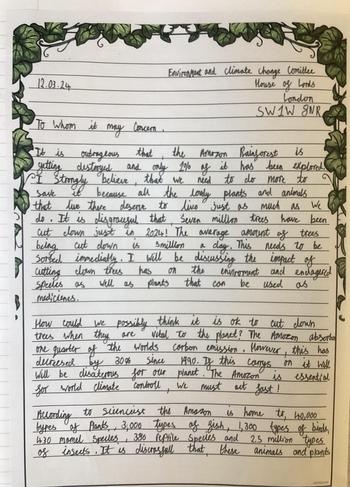 Enviroment and Climate Change Comittee
12.03.24 House of Lords
London
SW1W 8NR
To Whom it may Concern,
It is outrageous that, the Amazon Rainforest is
getting destroyed and only 1% of it has been explored
I strongly believe, that we need to do more to
save it because all the lovely plants and animals
that live there deserve to live just as much as we
do. It is disgraceful that Seven million trees have been
cut down just in 2024! The average amount of trees
being cut down is 3million a day. This needs to be
sorted immediatly. I will be discussing the impact of
cutting down trees has on the enviroment and endagered
species as well as plants that can be used as
medicines.
How could we possibly think it is ok to cut down
trees when they are vital to the planet? The Amazon absorbs
one quarter of the worlds carbon emission. However, this has
decresed by 30% since 1990. If this carrys on it will
will be disasterous for our planet. The Amazon is essential
for world climate controll, we must act fast!
According to Sciencetise the Amazon is home to, 40,000
types of Plants, 3,000 types of fish, 1,300 types of birds,
430 mamel species, 380 reptile species and 2.5 million types
of insects. It is that, these animals and plants